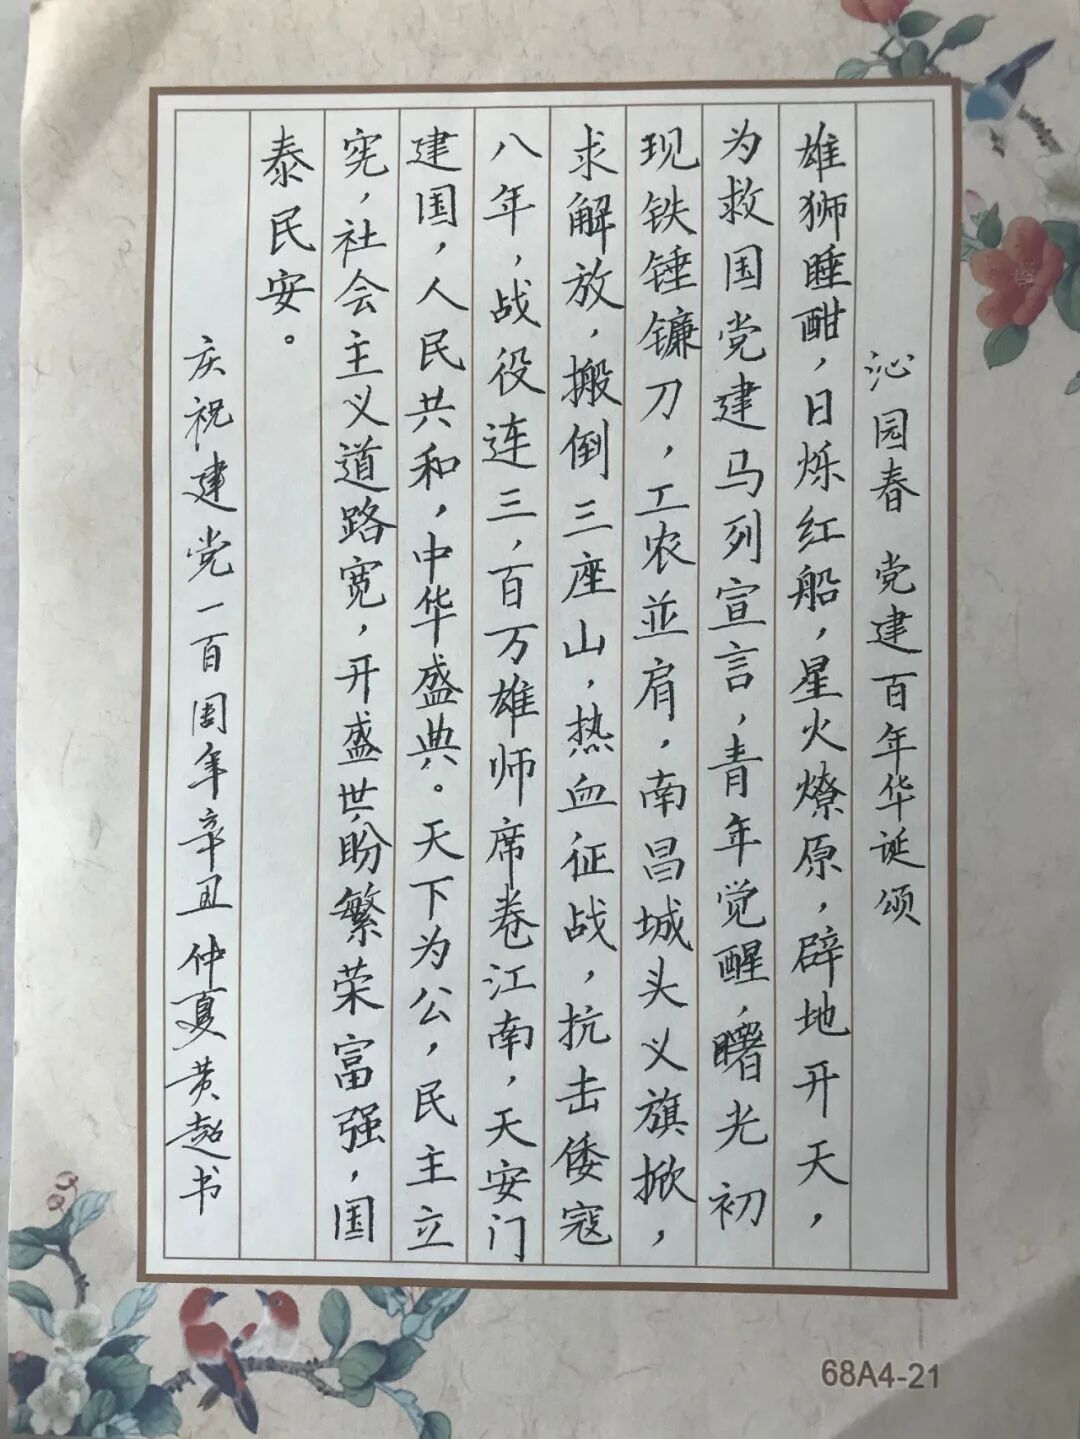 沁园春 党建百年华诞颂
雄狮睡酣，日烁红船，星火燎原，辟地开天，
为救国党建马列宣言，青年觉醒，曙光初
现铁锤镰刀，工农並肩，南昌城头义旗掀，
求解放，搬倒三座山，热血征战，抗击倭寇
八年，战役连三，百万雄师席卷江南，天安门
建国，人民共和，中华盛典。天下为公，民主立
宪，社会主义道路宽，开盛世盼繁荣富强，国
泰民安。
庆祝建党一百周年辛丑仲夏黄超书
68A4-21